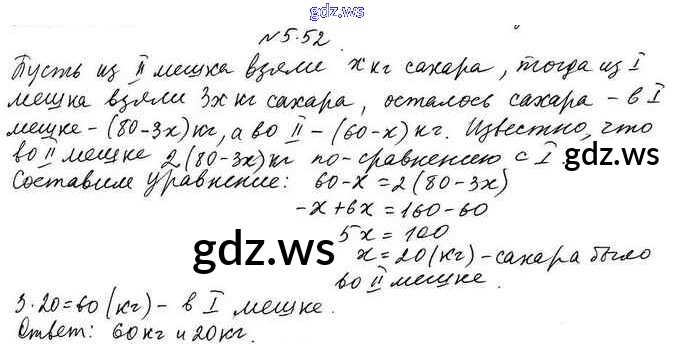 gdz.ws
№5.52.
Пусть из II мешка взяли x кг сахара, тогда из I
мешка взяли 3x кг сахара, осталось сахара - в I
мешке - (80-3x) кг, а во II - (60-x) кг. Известно, что
во II мешке 2(80-3x) кг по-сравнению с I.
gdz.ws
Составим уравнение: 60-x=2(80-3x)
-x+6x=160-60
5x=100
x=20(кг)-сахара было
во II мешке.
gdz.ws
3·20=60(кг)- в I мешке.
Ответ: 60кг и 20кг.
gdz.ws